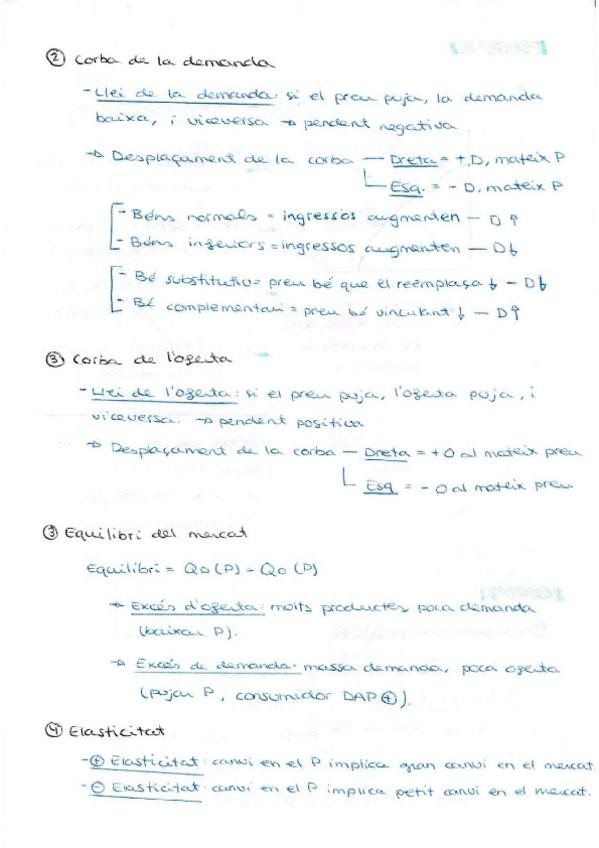 ② Corba de la demanda
- Llei de la demanda: si el preu puja, la demanda
baixa, i viceversa → pendent negativa
→ Desplaçament de la corba — Dreta = + D, mateix P
Esq. = - D, mateix P
- Béns normals = ingressos augmenten — D↑
- Béns inferiors = ingressos augmenten — D↓
- Bé substitutiu = preu bé que el reemplaça ↓ — D↓
- Bé complementari = preu bé vinculant ↓ — D↑
③ Corba de l'oferta
- Llei de l'oferta: si el preu puja, l'oferta puja, i
viceversa. → pendent positiva
→ Desplaçament de la corba — Dreta = + O al mateix preu
Esq = - O al mateix preu.
③ Equilibri del mercat
Equilibri = QD (P) = QO (P)
→ Excés d'oferta: molts productes poca demanda
(baixar P).
→ Excés de demanda: massa demanda, poca oferta
(pujar P, consumidor DAP ⊕).
④ Elasticitat
- ⊕ Elasticitat: canvi en el P implica gran canvi en el mercat.
- ⊖ Elasticitat: canvi en el P implica petit canvi en el mercat.